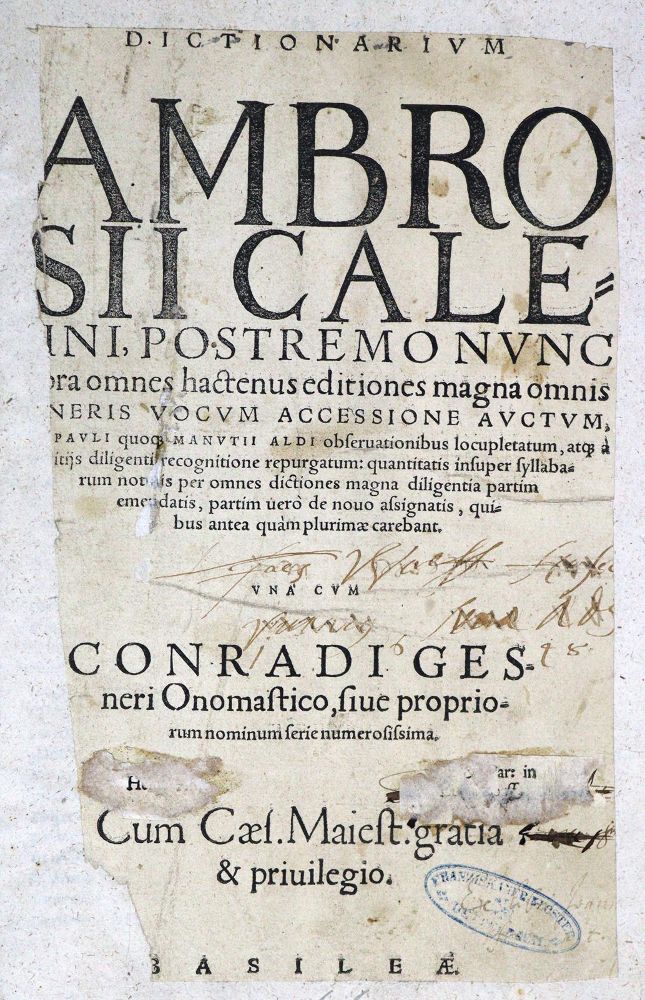 DICTIONARIVM
AMBRO
SII CALE=
INI, POSTREMO NVNC
omnes hactenus editiones magna omnis
NERIS VOCVM ACCESSIONE AVCTVM,
PAVLI quoq; MANVTII ALDI obſeruationibus locupletatum, atq; à
itijs diligenti recognitione repurgatum: quantitatis inſuper ſyllaba=
rum notulis per omnes dictiones magna diligentia partim
emendatis, partim uerò de nouo aſsignatis, qui=
bus antea quàm plurimæ carebant.
VNA CVM
CONRADI GES=
neri Onomaſtico, ſiue proprio=
rum nominum ſerie numeroſiſsima.
in
Cum Cæſ. Maieſt. gratia
& priuilegio.
FRANZISKANERKLOSTER
BASILEÆ.